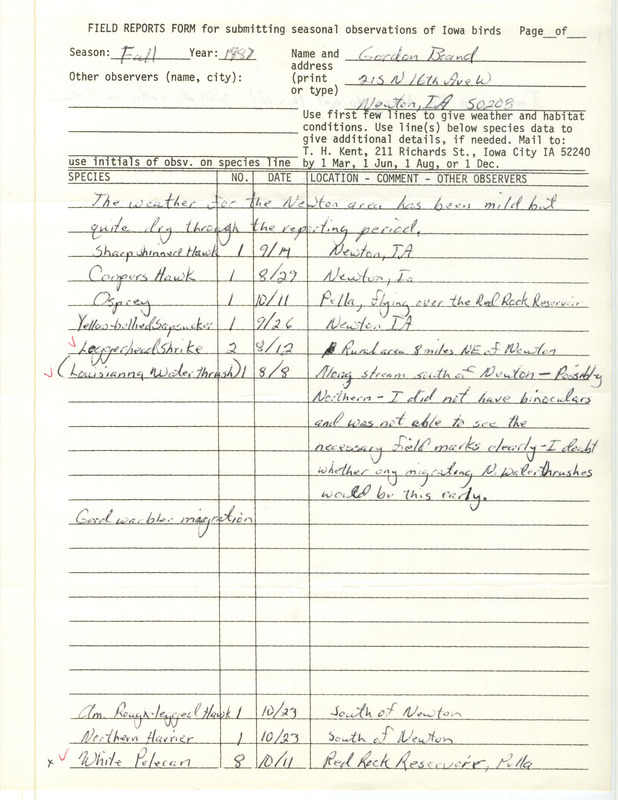 FIELD REPORTS FORM for submitting seasonal observations of Iowa birds Page__of___
Season: Fall Year: 1987 Name and address (print or type) Gordon Brand
Other observers (name, city): 215 N 16th Ave W
Newton, IA 50208
Use first few lines to give weather and habitat
conditions. Use line(s) below species data to
give additional details, if needed. Mail to:
T. H. Kent, 211 Richards St., Iowa City IA 52240
use initials of obsv. on species line by 1 Mar, 1 Jun, 1 Aug, or 1 Dec.
SPECIES NO. DATE LOCATION - COMMENT - OTHER OBSERVERS
The weather for the Newton area has been mild but
quite dry through the reporting period.
Sharp shinned Hawk 1 9/14 Newton, IA
Coopers Hawk 1 8/29 Newton, Ia
Osprey 1 10/11 Pella, flying over the Red Rock Reservoir
Yellow-bellied Sapsucker 1 9/26 Newton IA
✓ Loggerhead Shrike 2 8/12 Rural area 8 miles NE of Newton
✓ (Louisianna Waterthrush) 1 8/8 Along stream south of Newton - Possibly
Northern - I did not have binoculars
and was not able to see the
necessary field marks clearly - I doubt
whether any migrating N. Waterthrushes
would be this early.
Good warbler migration
Am. Rough-legged Hawk 1 10/23 South of Newton
Northern Harrier 1 10/23 South of Newton
x ✓ White Pelecan 8 10/11 Red Rock Reservoir, Pella